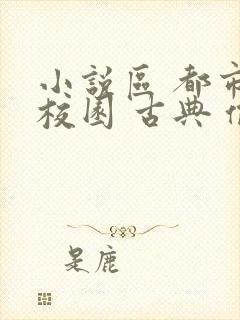 小說區 都市
校園 古典
是鹿